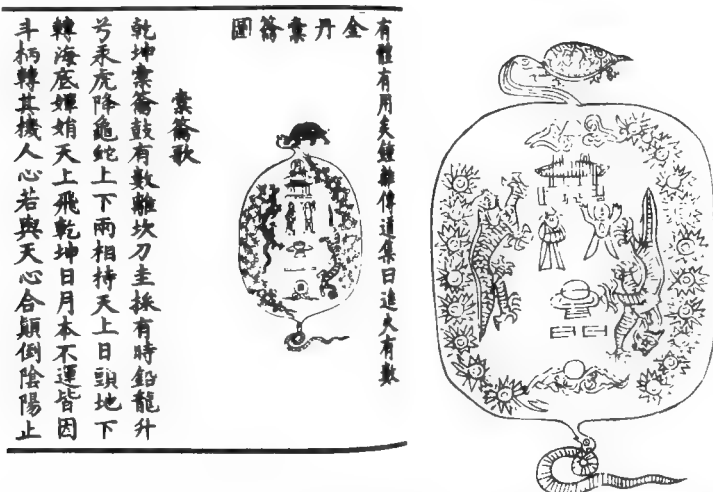 有體有用矣鍾離傳道集曰進火有數
金丹橐籥圖
橐籥歌
乾坤橐籥鼓有數離坎刀圭採有時鉛龍升
兮汞虎降龜蛇上下兩相持天上日頭地下
轉海底嬋娟天上飛乾坤日月本不運皆因
斗柄轉其機人心若與天心合顛倒陰陽止